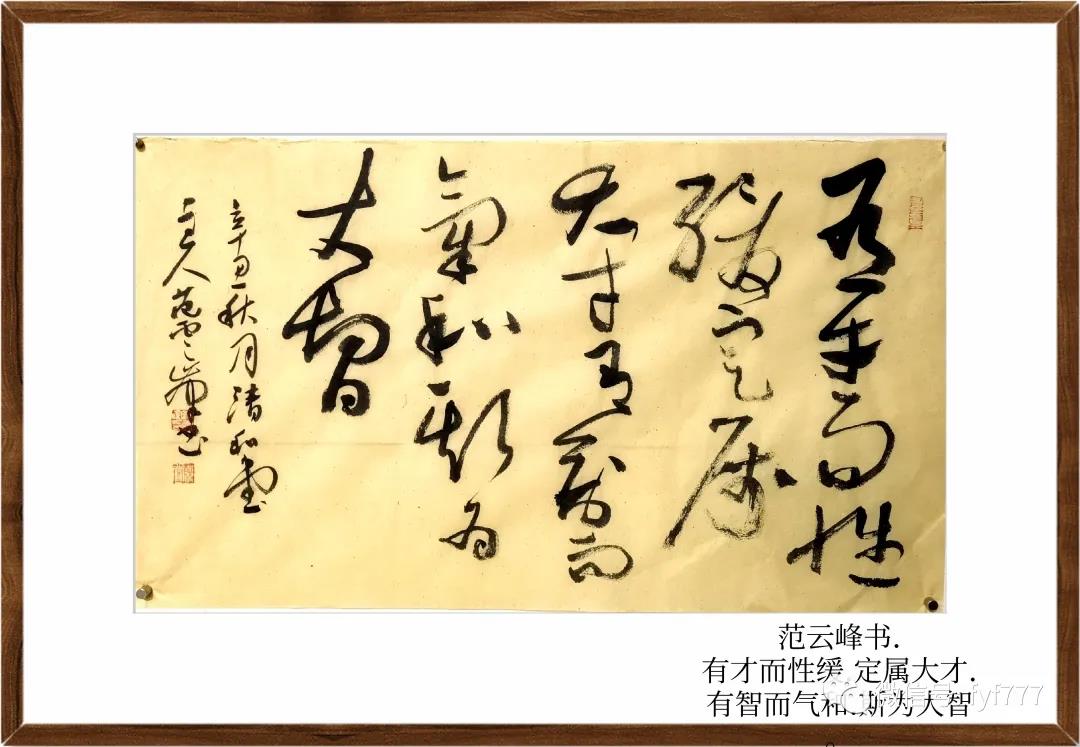 有才而性
緩定属
大才有智而
氣和斯为
大智
辛丑秋月清和堂
主人范雲峰书
范云峰书.
有才而性缓,定属大才.
有智而气和.斯为大智
微信号: fyf777